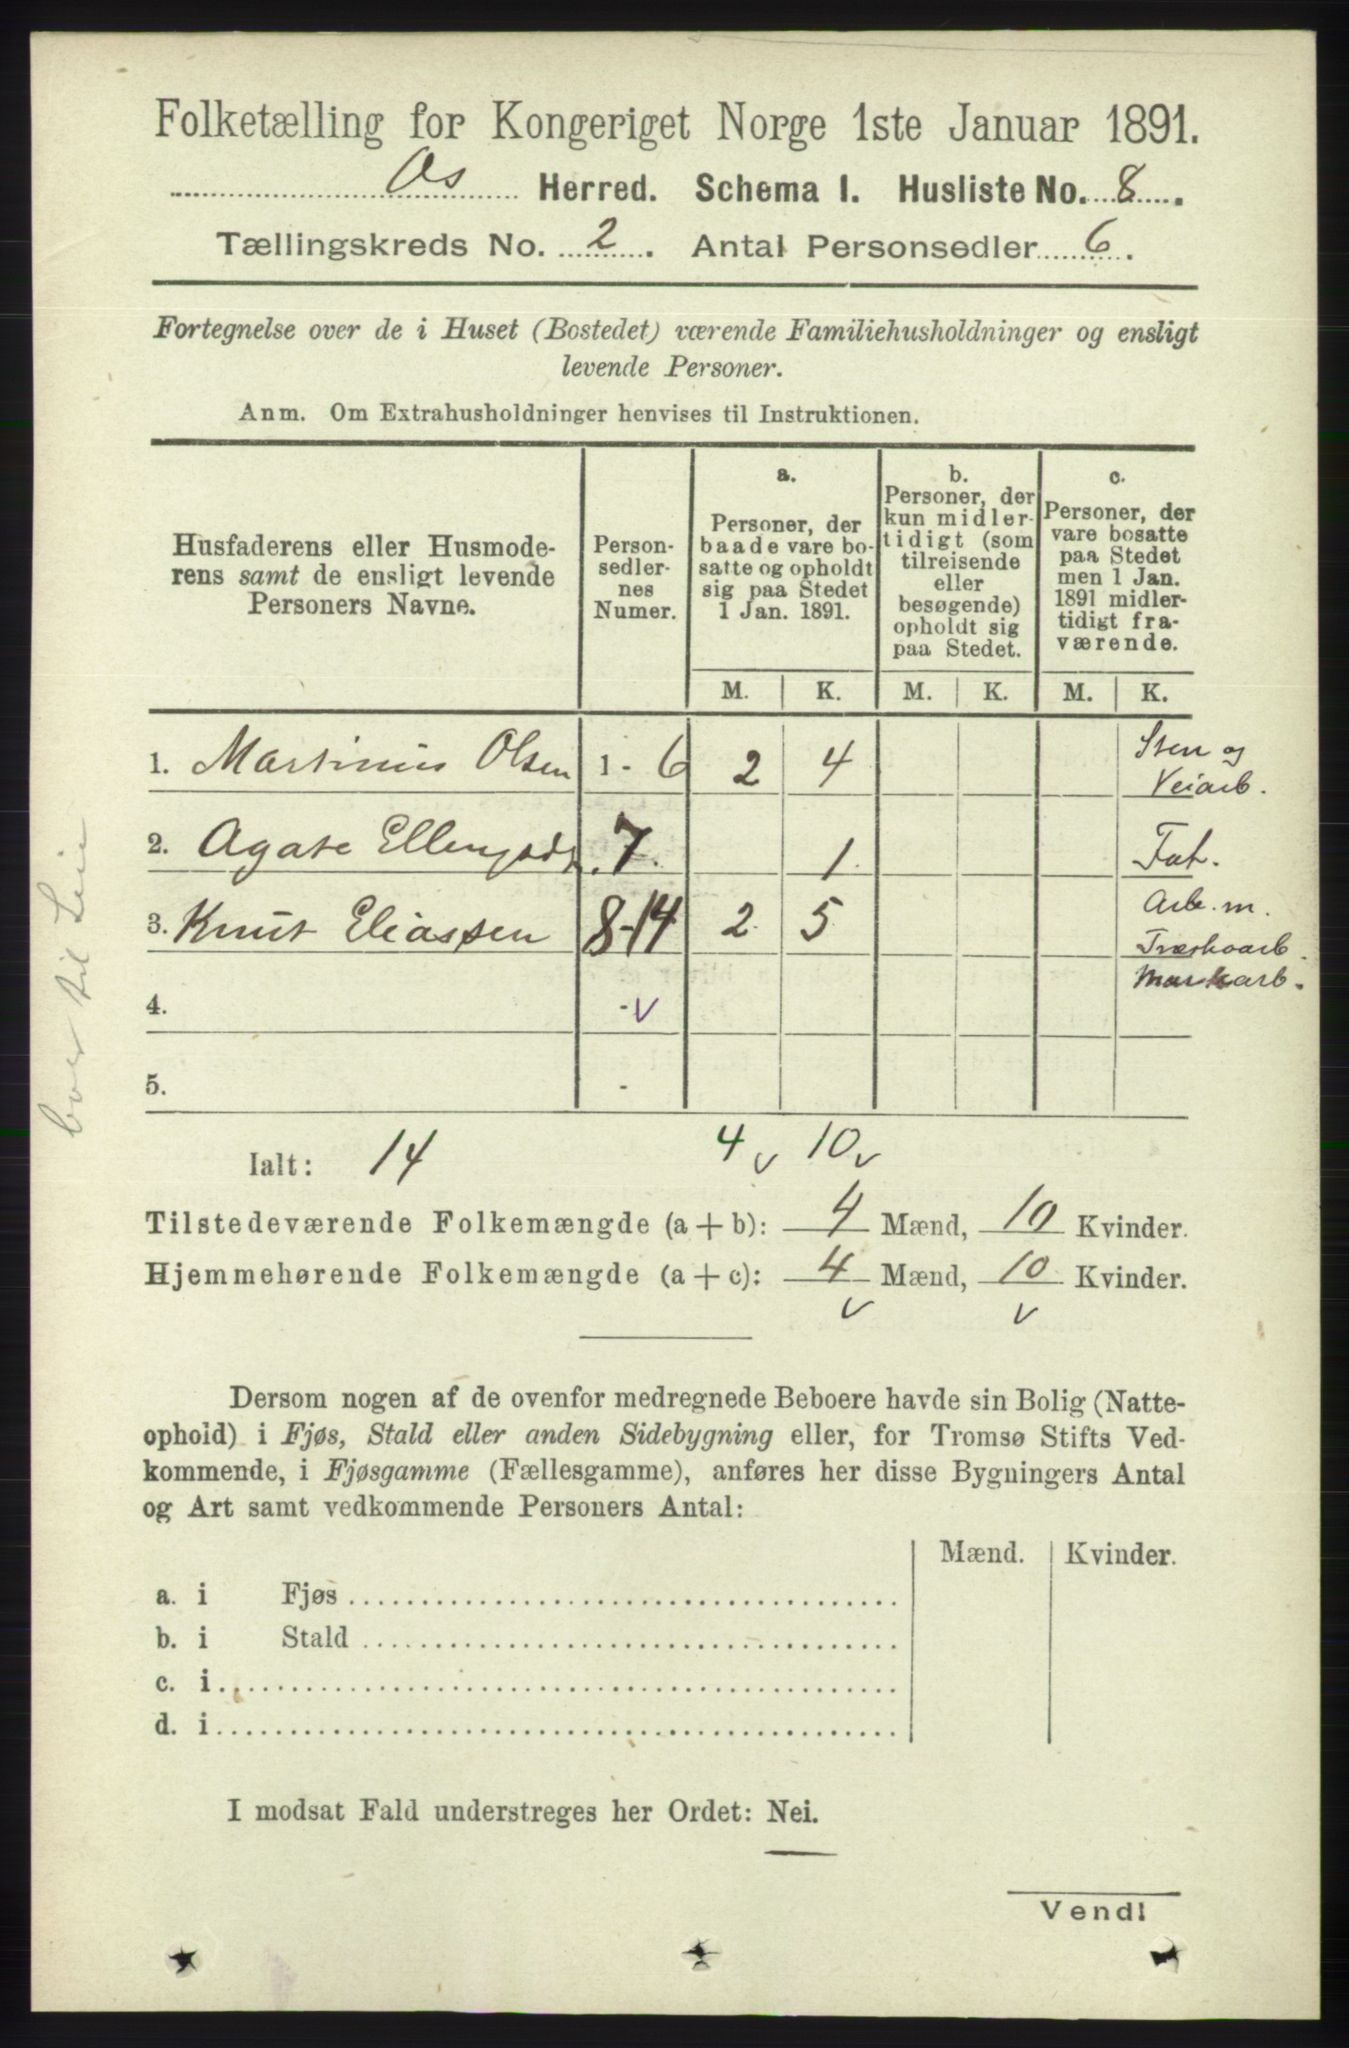 Folketælling for Kongeriget Norge 1ste Januar 1891.
Os Herred. Schema I. Husliste No. 8.
Tællingskreds No. 2. Antal Personsedler 6.
Fortegnelse over de i Huset (Bostedet) værende Familiehusholdninger og ensligt
levende Personer.
Anm. Om Extrahusholdninger henvises til Instruktionen.
Husfaderens eller Husmode-
rens samt de ensligt levende
Personers Navne.
Person-
sedler-
nes
Numer.
a.
Personer, der
baade vare bo-
satte og opholdt
sig paa Stedet
1 Jan. 1891.
b.
Personer, der
kun midler-
tidigt (som
tilreisende
eller
besøgende)
opholdt sig
paa Stedet.
c.
Personer, der
vare bosatte
paa Stedet
men 1 Jan.
1891 midler-
tidigt fra-
værende.
M. K. M. K. M. K.
1. Martinus Olsen 1 - 6 2 4 Sten og
Veiarb.
2. Agate 7. 1. Fat.
3. Knut Eliassen 8-14 2. 5 Arb. m.
Træskoarb.
Markarb.
4. - v
5. -
bor til Leie
Ialt: 14 4 v 10 v
Tilstedeværende Folkemængde (a + b): 4 Mænd, 10 Kvinder.
Hjemmehørende Folkemængde (a + c): 4 Mænd, 10 Kvinder.
v v
Dersom nogen af de ovenfor medregnede Beboere havde sin Bolig (Natte-
ophold) i Fjøs, Stald eller anden Sidebygning eller, for Tromsø Stifts Ved-
kommende, i Fjøsgamme (Fællesgamme), anføres her disse Bygningers Antal
og Art samt vedkommende Personers Antal:
Mænd. Kvinder.
a. i Fjøs
b. i Stald
c. i
d. i
I modsat Fald understreges her Ordet: Nei.
Vend!